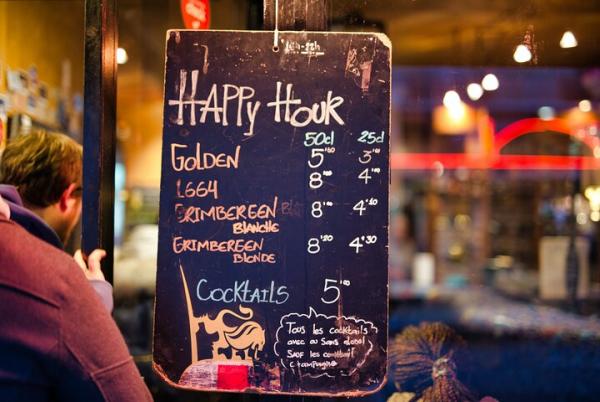 HAPPy HOUR
50cl 25cl
GOLDEN 5 3
1664 8 4
GRIMBERGEN BLANCHE 8 4
GRIMBERGEN BLONDE 8 4
COCKTAILS 5
Tous les cocktails
avec ou sans alcool
SAUF les cocktail
champagne